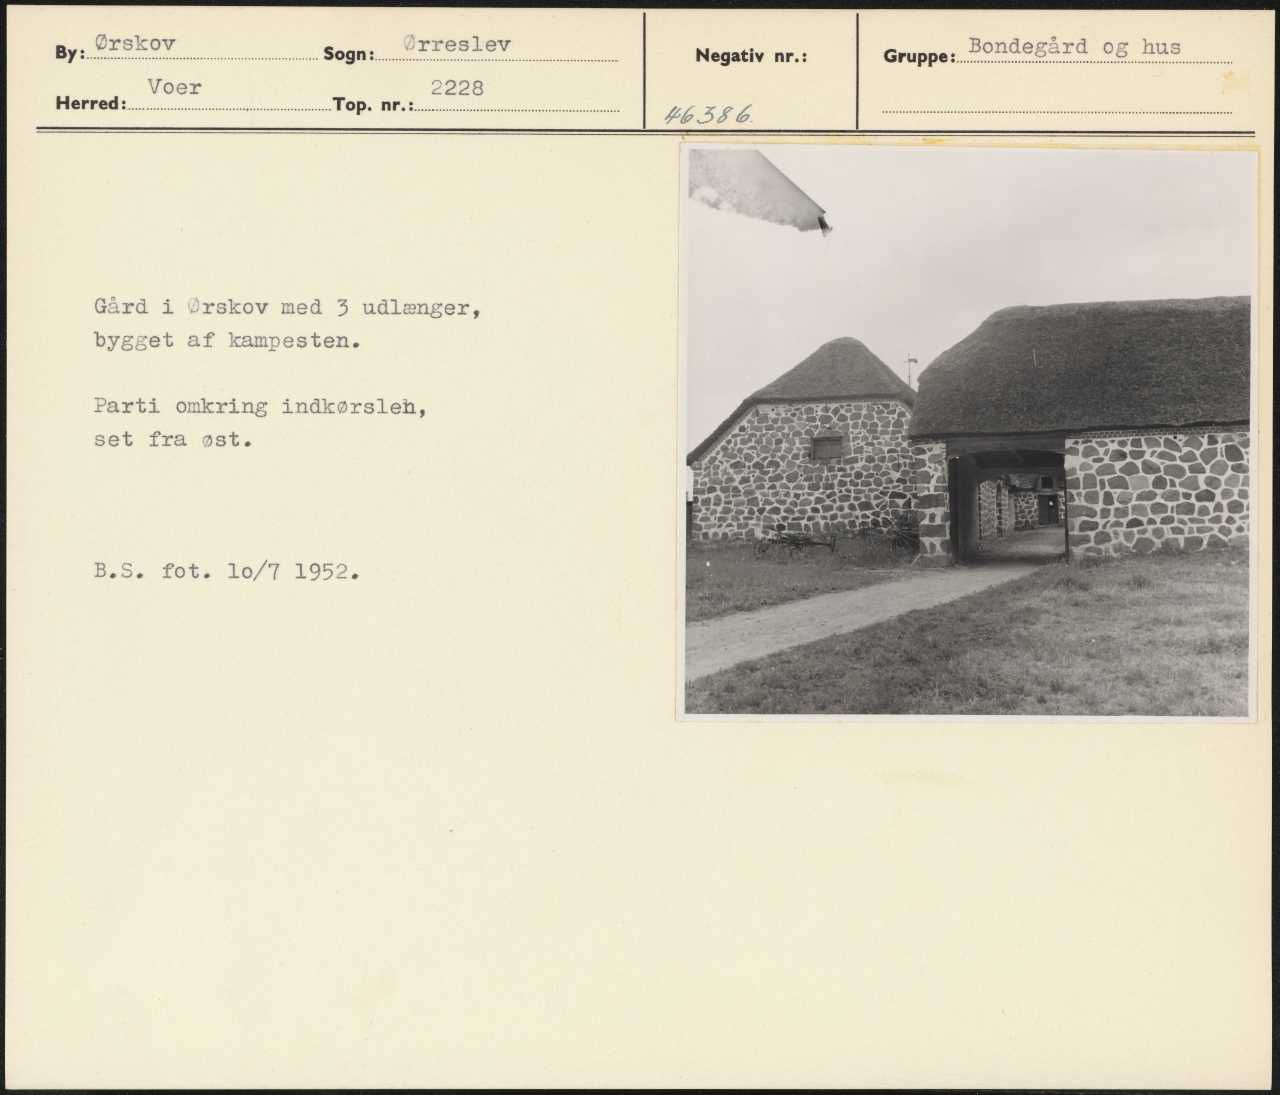 By: Ørskov Sogn: Ørreslev Negativ nr.: Gruppe: Bondegård og hus
Herred: Voer Top. nr.: 2228 46386.
Gård i Ørskov med 3 udlænger,
bygget af kampesten.
Parti omkring indkørslen,
set fra øst.
B.S. fot. lo/7 1952.